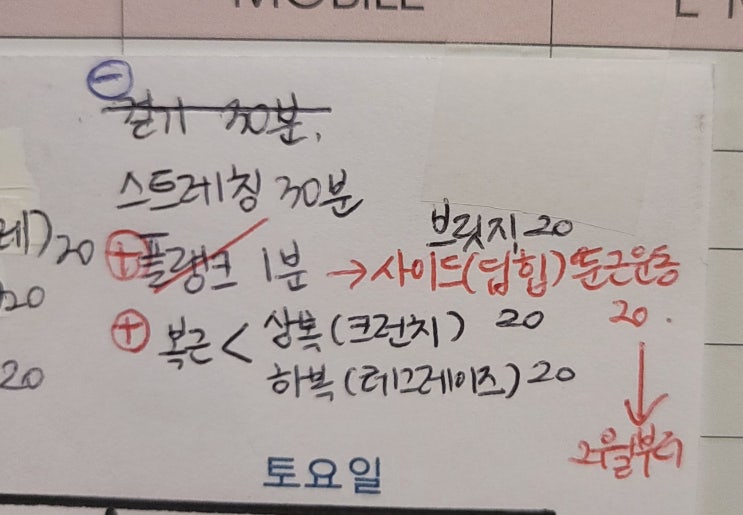 MOBILE
⊖
걷기 30분.
스트레칭 30분
브릿지 20
레) 20
⊕ 플랭크 1분 → 사이드(딥힙) 둔근운동
20
20.
⊕ 복근 < 상복 (크런치) 20
하복 (레그레이즈) 20
20
2월부터
토요일